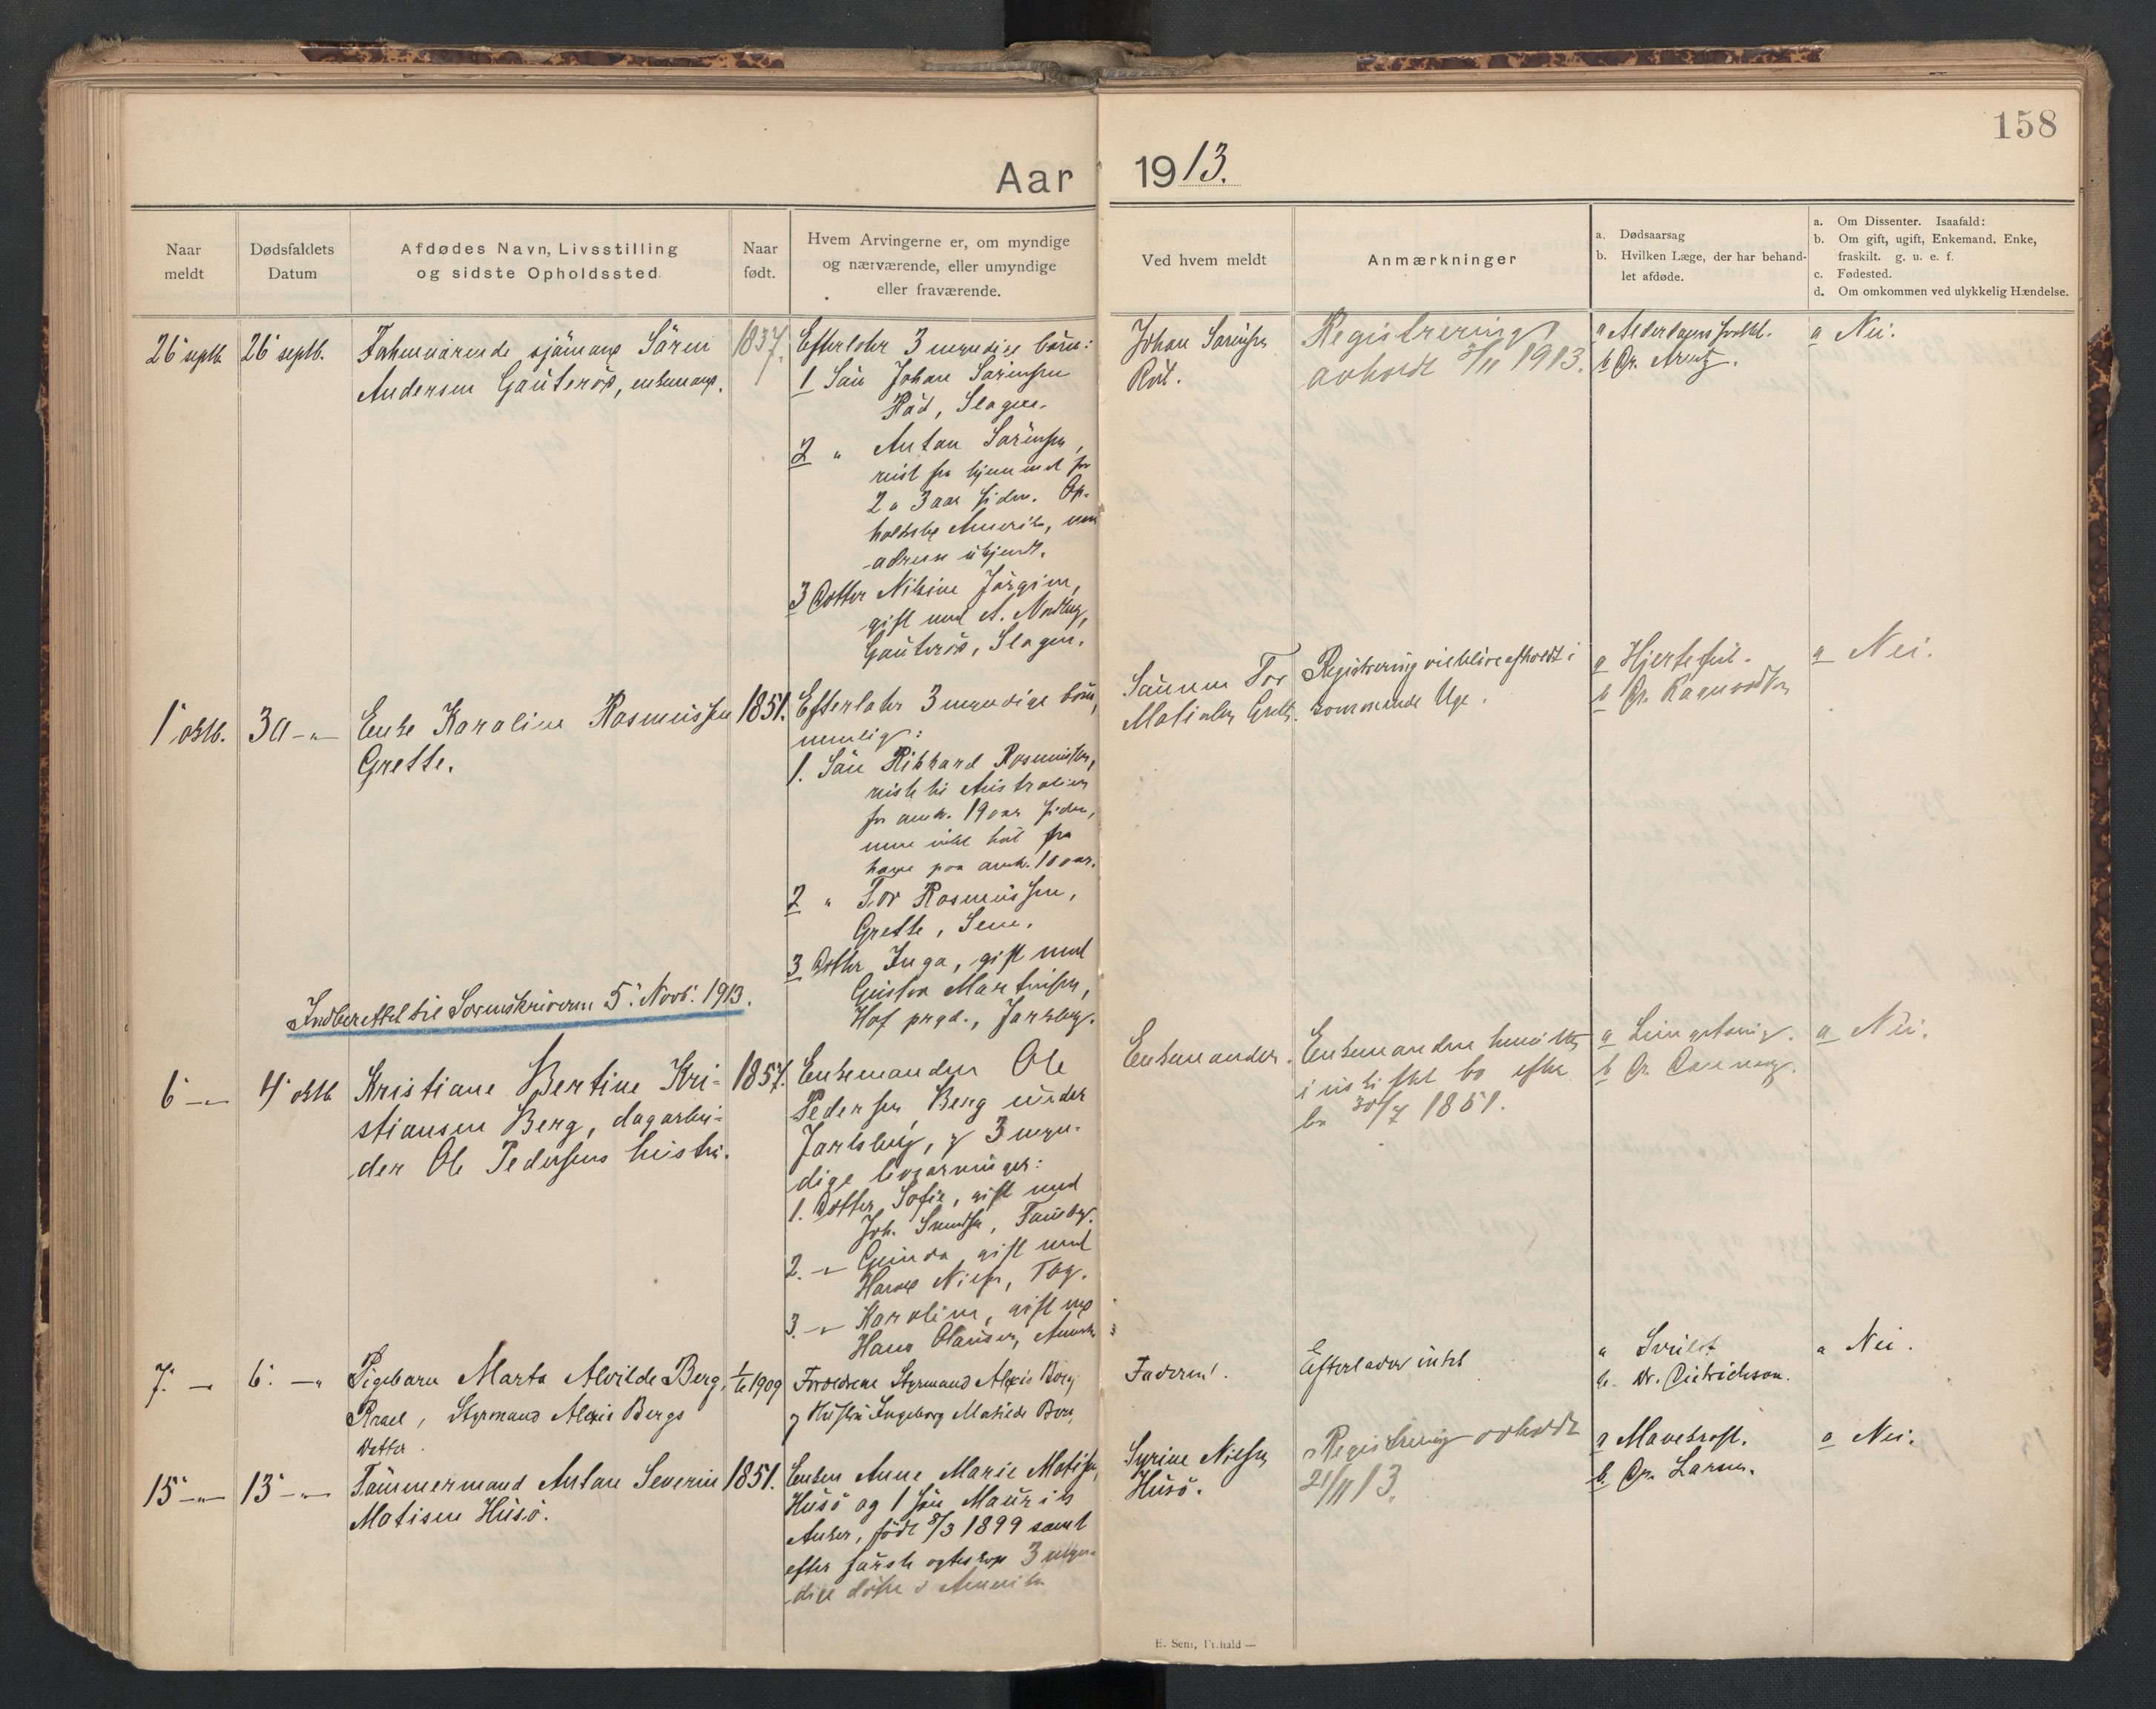 158
Aar 1913.
Naar
meldt
Dødsfaldets
Datum
Afdødes Navn, Livsstilling
og sidste Opholdssted
Naar
født.
Hvem Arvingerne er, om myndige
og nærværende, eller umyndige
eller fraværende.
Ved hvem meldt
Anmærkninger
a. Dødsaarsag
b. Hvilken Læge, der har behand-
let afdøde.
a. Om Dissenter. Isaafald:
b. Om gift, ugift, Enkemand, Enke,
fraskilt. g. u. e. f.
c. Fødested.
d. Om omkommen ved ulykkelig Hændelse.
26 septb.
26 septb.
sjömand Sören
Andersen Gauterød, enkemand.
1837.
Efterlader 3 myndige börn:
1 Sön Johan Sörensen
Råd, Slagen.
2 " Anton Sörensen,
reist fra hjemmet for
2 a 3 aar siden. Op-
holdsted Amerika, men
adresse ukjendt.
3 Datter Nilsine Jörgine,
gift med A.
Gauterød, Slagen.
Johan Sörensen
Registrering
avholdt 3/11 1913.
a Alderdomssvakh.
b Dr. Arentz.
a Nei.
1 oktb.
30 -"-
Enke Karoline Rasmussen
Grette.
1851.
Efterlader 3 myndige börn,
nemlig:
1. Sön Rikhard Rasmussen,
reiste til Australien
for omtr. 19 aar siden,
men ikke hört fra
ham paa omtr. 10 aar.
2 " Tor Rasmussen,
Grette, Sem.
3 Datter Inga, gift med
Gustav Martinsen,
Hof prgd., Jarlsberg.
Sönnen Tor
Grette.
Registrering vil blive afholdt i
kommende Uge.
a Hjertefeil.
b Dr.
a Nei.
Indberettet til Sorenskriveren 5. Novb. 1913.
6 -"-
4 oktb
Kristiane Bertine Kri-
stiansen Berg, dagarbei-
der Ole Pedersens hustru.
1857.
Enkemanden Ole
Pedersen Berg under
Jarlsberg, og 3 myn-
dige livsarvinger:
1. Datter Sofie, gift med
Joh. Tönsberg.
2. -"- Gunda, gift med
Hans Nilsen, Tbg.
3. -"- Karoline, gift med
Hans Olausen,
Enkemanden.
Enkemanden hensitter
i uskiftet bo efter
lov 30/7 1851.
a
b Dr.
a Nei.
7. -"-
6. -"-
Pigebarn Marta Alvilde Berg,
Ræel, Styrmand Alexis Bergs
Datter.
1909
Forældrene Styrmand Alexis Berg
og Hustru Ingeborg Matilde Berg
Faderen.
Efterlader intet
a
b. Dr. Dietrichson.
a Nei.
15 -"-
13 -"-
Tömmermand Anton Severin
Matisen Husö.
1851.
Enken Anne Marie Matisen,
Husö og 1 sön Maurits
Anker, född 8/3 1899 samt
efter förste egteskap 3 myn-
dige dötre i Amerika
Syrine Nilsen
Husö.
Registrering avholdt
21/11 13.
a Mavekraft.
b. Dr. Larsen.
a Nei.